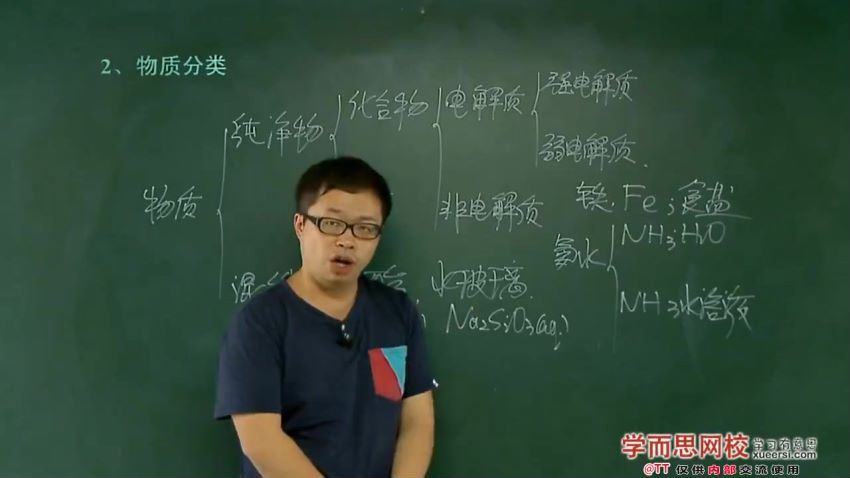 2、物质分类
强电解质
纯净物 化合物 电解质
弱电解质.
物质 非电解质 铁. Fe; 食盐
氨水 NH3·H2O
水玻璃
Na2SiO3(aq)
NH3水溶液
学而思网校 学习有意思
xueersi.com
@TT 仅供内部交流使用